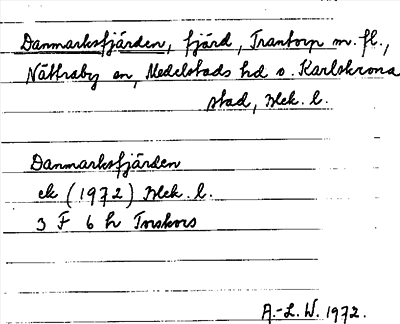 Danmarksfjärden, fjärd, Trantorp m. fl.,
Nättraby sn, Medelstads hd o. Karlskrona
stad, Blek. l.
Danmarksfjärden
ek (1972) Blek. l.
3 F 6 h Torskors
A.-L. W. 1972.